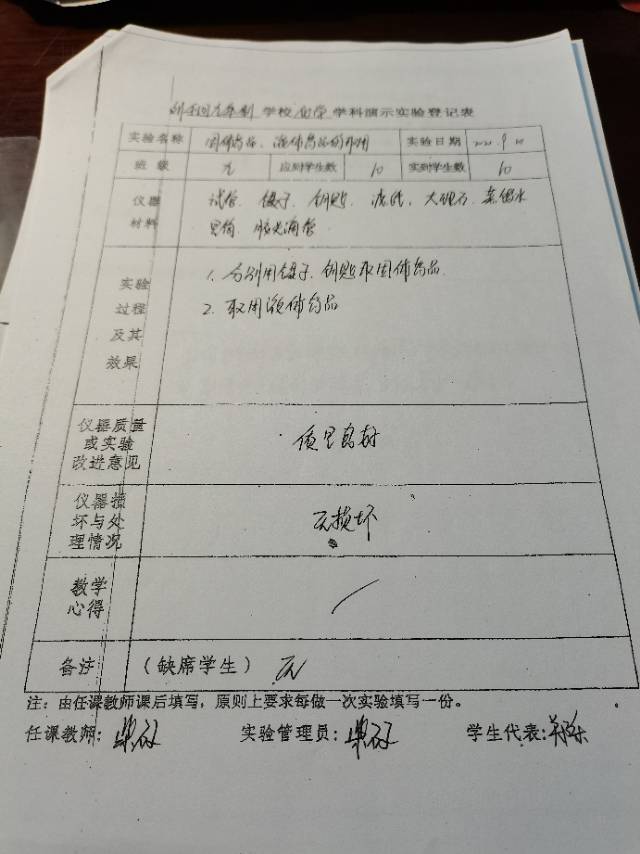 学校化学学科演示实验登记表
实验名称 固体药品、液体药品的取用 实验日期
班级 九 应到学生数 10 实到学生数 10
仪器 试管、镊子、钥匙、滤纸、大理石、蒸馏水
材料
实验 1. 分别用镊子、钥匙取固体药品
过程 2. 取用液体药品
及其
效果
仪器质量
或实验 质量良好
改进意见
仪器损
坏与处 无损坏
理情况
教学
心得
备注 (缺席学生) 无
注: 由任课教师课后填写, 原则上要求每做一次实验填写一份。
任课教师: 实验管理员: 学生代表: